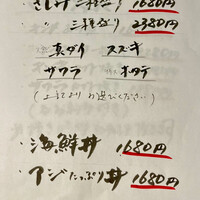 ・さしみ 二種盛り 1680円
三種盛り 2380円
真ダイ スズキ
サワラ ホタテ
(上記よりお選びください)
・海鮮丼 1680円
・アジたっぷり丼 1680円